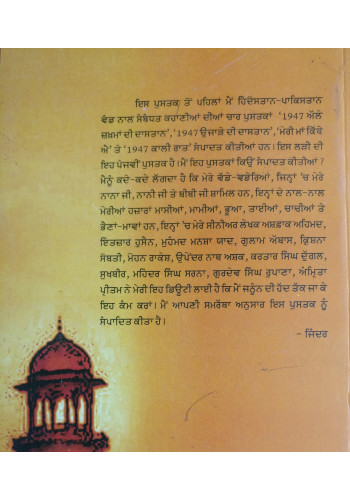 ਇਸ ਪੁਸਤਕ ਤੋਂ ਪਹਿਲਾਂ ਮੈਂ ਹਿੰਦੋਸਤਾਨ-ਪਾਕਿਸਤਾਨ
ਵੰਡ ਨਾਲ ਸੰਬੰਧਤ ਕਹਾਣੀਆਂ ਦੀਆਂ ਚਾਰ ਪੁਸਤਕਾਂ '1947 ਔਲੇ
ਜ਼ਖ਼ਮਾਂ ਦੀ ਦਾਸਤਾਨ', '1947 ਉਜਾੜੇ ਦੀ ਦਾਸਤਾਨ', 'ਮੇਰੀ ਮਾਂ ਕਿੱਥੇ
ਐ' ਤੇ '1947 ਕਾਲੀ ਰਾਤ' ਸੰਪਾਦਤ ਕੀਤੀਆਂ ਹਨ। ਇਸ ਲੜੀ ਦੀ
ਇਹ ਪੰਜਵੀਂ ਪੁਸਤਕ ਹੈ। ਮੈਂ ਇਹ ਪੁਸਤਕਾਂ ਕਿਉਂ ਸੰਪਾਦਤ ਕੀਤੀਆਂ ?
ਮੈਨੂੰ ਕਦੇ-ਕਦੇ ਲੱਗਦਾ ਹੈ ਕਿ ਮੇਰੇ ਵੱਡੇ-ਵਡੇਰਿਆਂ, ਜਿਨ੍ਹਾਂ 'ਚ ਮੇਰੇ
ਨਾਨਾ ਜੀ, ਨਾਨੀ ਜੀ ਤੇ ਬੀਬੀ ਜੀ ਸ਼ਾਮਿਲ ਹਨ, ਇਨ੍ਹਾਂ ਦੇ ਨਾਲ-ਨਾਲ
ਮੇਰੀਆਂ ਹਜ਼ਾਰਾਂ ਮਾਸੀਆਂ, ਮਾਮੀਆਂ, ਭੂਆ, ਤਾਈਆਂ, ਚਾਚੀਆਂ ਤੇ
ਭੈਣਾਂ-ਮਾਵਾਂ ਹਨ, ਇਨ੍ਹਾਂ 'ਚ ਮੇਰੇ ਸੀਨੀਅਰ ਲੇਖਕ ਅਸ਼ਫ਼ਾਕ ਅਹਿਮਦ,
ਇਤਜ਼ਾਰ ਹੁਸੈਨ, ਮੁਹੰਮਦ ਮਨਸ਼ਾ ਯਾਦ, ਗੁਲਾਮ ਅੱਬਾਸ, ਕ੍ਰਿਸ਼ਨਾ
ਸੋਬਤੀ, ਮੋਹਨ ਰਾਕੇਸ਼, ਉਪੇਂਦਰ ਨਾਥ ਅਸ਼ਕ, ਕਰਤਾਰ ਸਿੰਘ ਦੁੱਗਲ,
ਸੁਖਬੀਰ, ਮਹਿੰਦਰ ਸਿੰਘ ਸਰਨਾ, ਗੁਰਦੇਵ ਸਿੰਘ ਰੁਪਾਣਾ, ਅੰਮ੍ਰਿਤਾ
ਪ੍ਰੀਤਮ ਨੇ ਮੇਰੀ ਇਹ ਡਿਊਟੀ ਲਾਈ ਹੈ ਕਿ ਮੈਂ ਜਨੂੰਨ ਦੀ ਹੱਦ ਤੱਕ ਜਾ ਕੇ
ਇਹ ਕੰਮ ਕਰਾਂ। ਮੈਂ ਆਪਣੀ ਸਮਰੱਥਾ ਅਨੁਸਾਰ ਇਸ ਪੁਸਤਕ ਨੂੰ
ਸੰਪਾਦਿਤ ਕੀਤਾ ਹੈ।
- ਜਿੰਦਰ